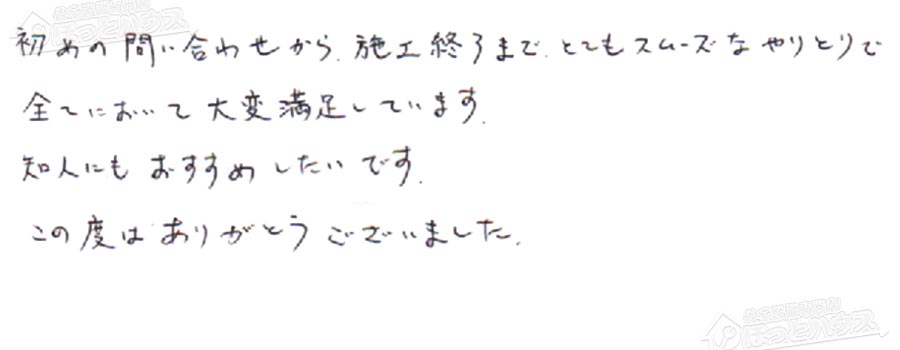 初めの問い合わせから、施工終了まで、とてもスムーズなやりとりで
全てにおいて大変満足しています。
知人にもおすすめしたいです。
この度はありがとうございました。
ほっとハウス